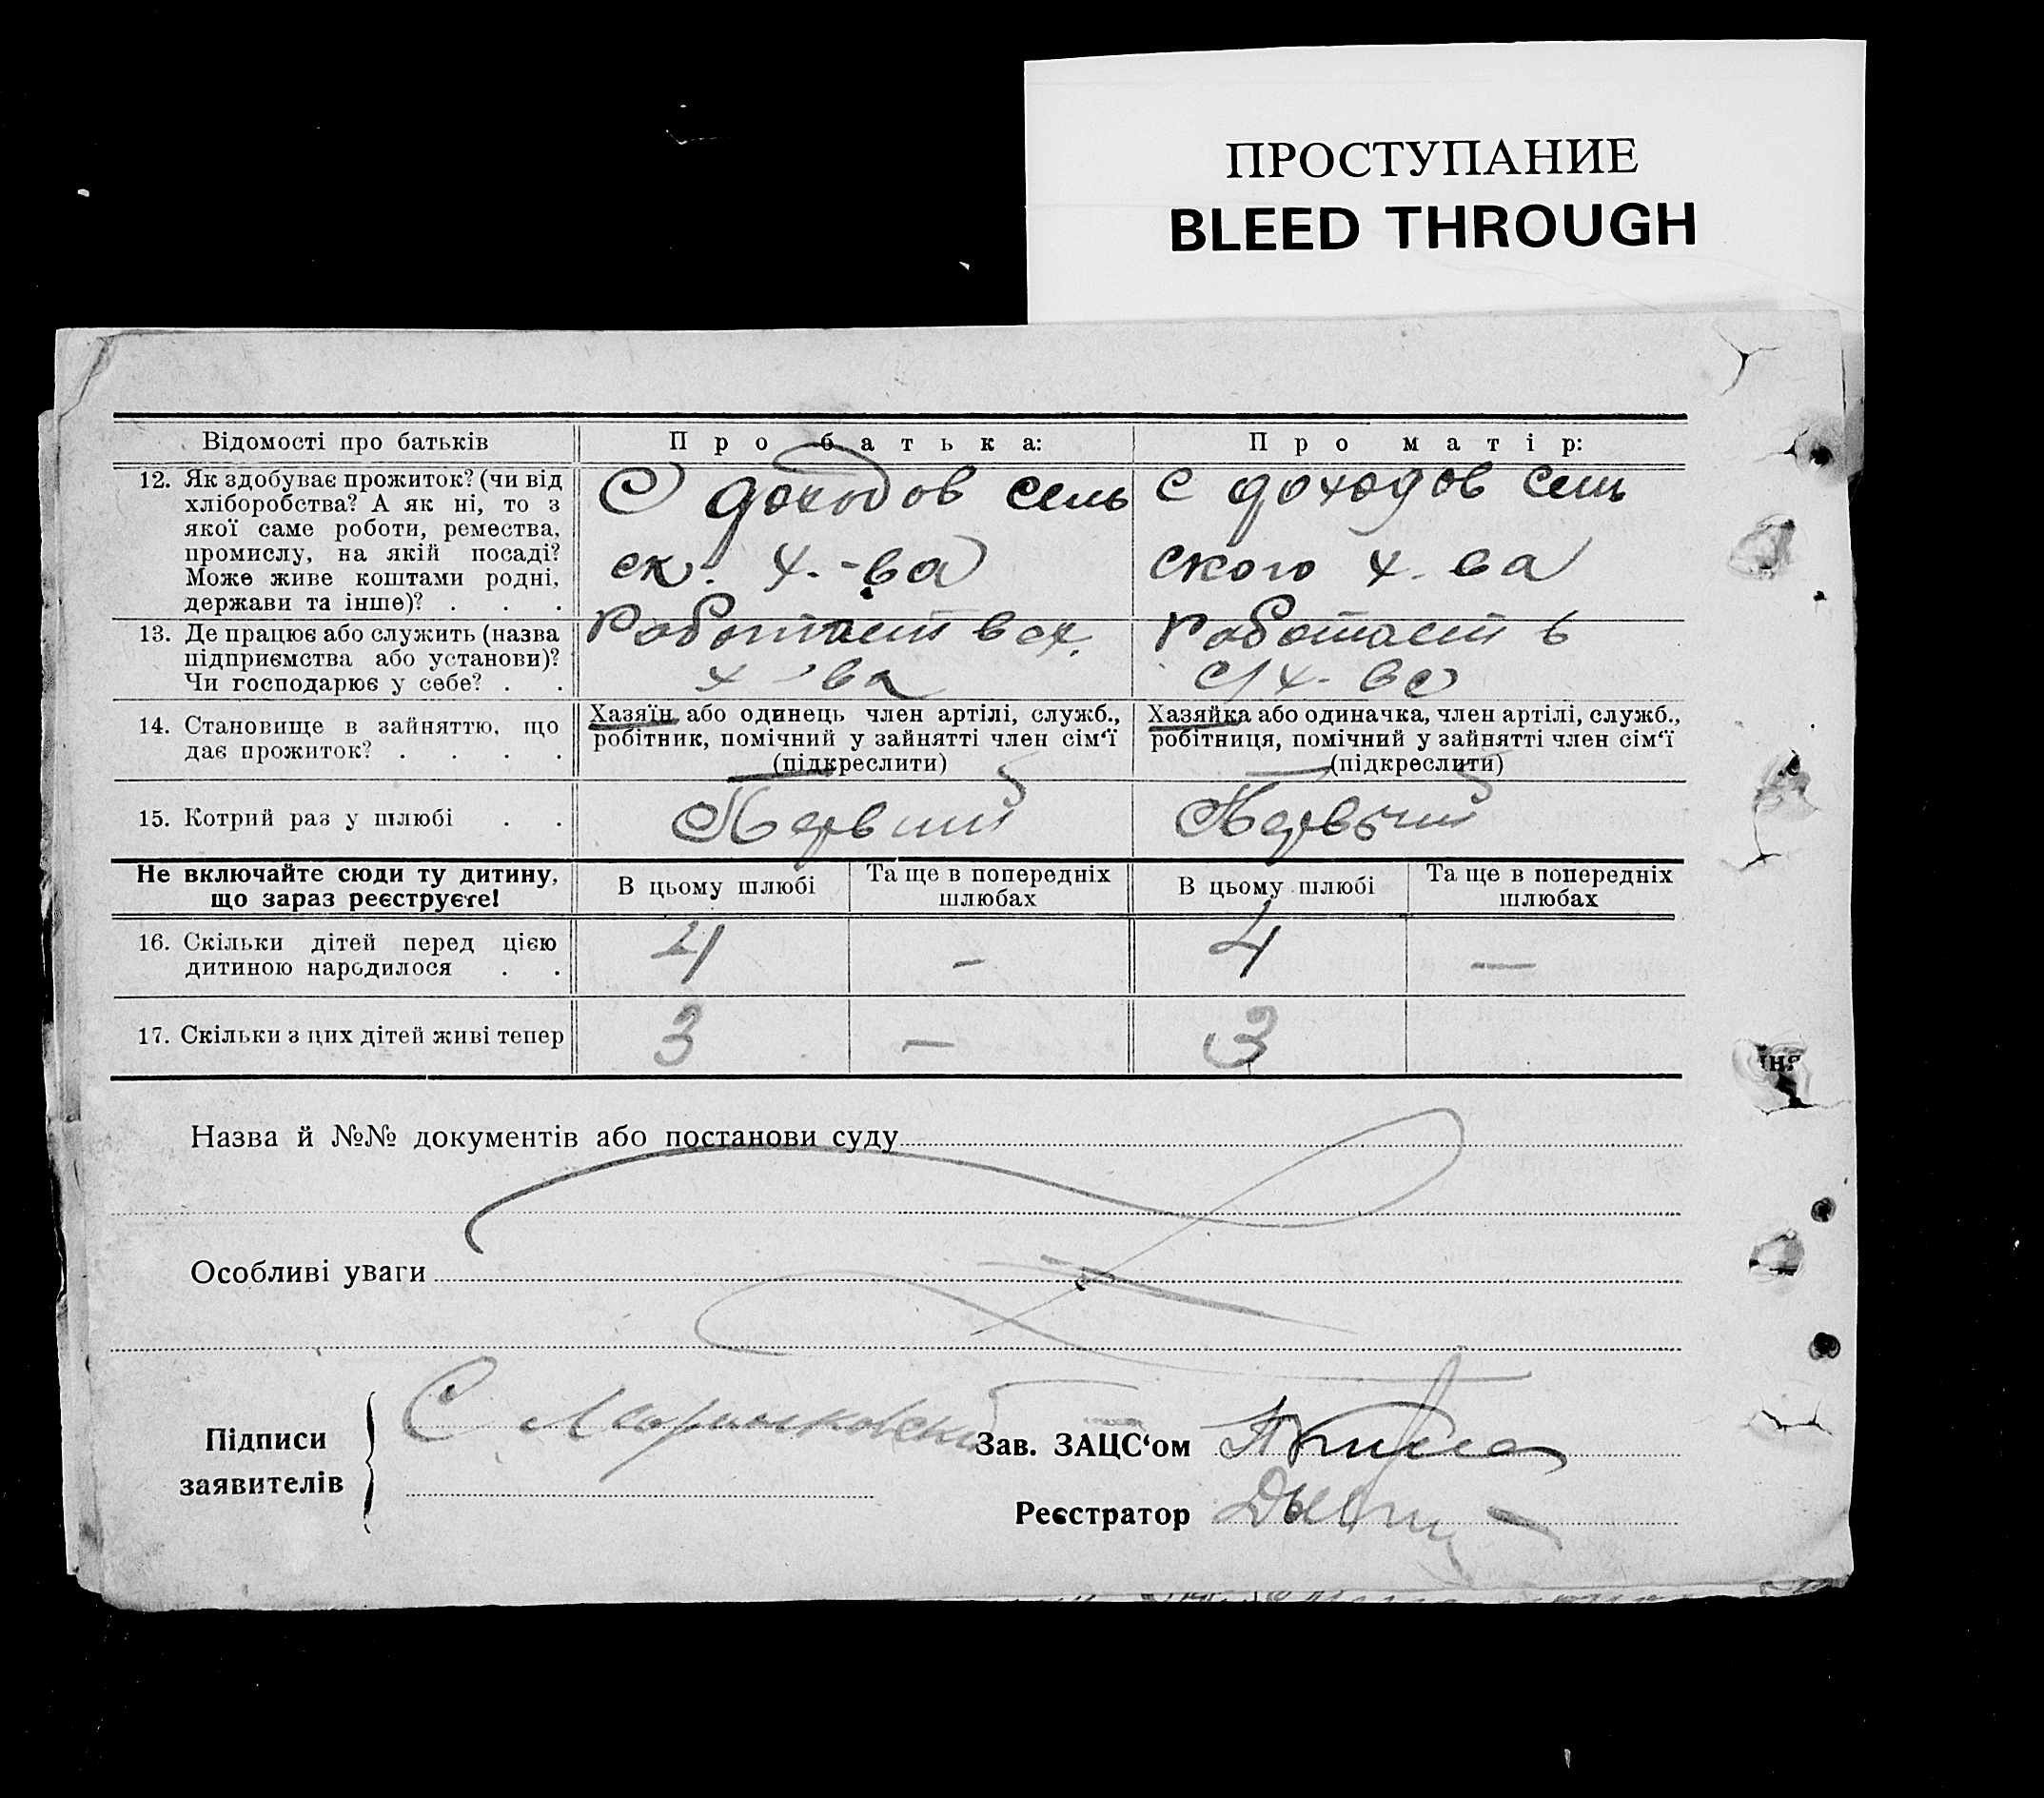 ПРОСТУПАНИЕ
BLEED THROUGH
Відомості про батьків
Про батька:
Про матір:
12. Як здобуває прожиток? (чи від
хліборобства? А як ні, то з
якої саме роботи, ремества,
промислу, на якій посаді?
Може живе коштами родні,
держави та інше)? . . .
С доходов сель
ск. х.-ва
С доходов сель
ского х.-ва
13. Де працює або служить (назва
підприємства або установи)?
Чи господарює у себе? . .
Работает в сх.
х-ва
Работает в
с/х-ве
14. Становище в зайняттю, що
дає прожиток? . . . .
Хазяїн або одинець член артілі, служб.,
робітник, помічний у зайнятті член сім‘ї
(підкреслити)
Хазяйка або одиначка, член артілі, служб.,
робітниця, помічний у зайнятті член сім‘ї
(підкреслити)
15. Котрий раз у шлюбі . .
Первый
Первый
Не включайте сюди ту дитину,
що зараз реєструєте!
В цьому шлюбі
Та ще в попередніх
шлюбах
В цьому шлюбі
Та ще в попередніх
шлюбах
16. Скільки дітей перед цією
дитиною народилося . .
4
-
4
—
17. Скільки з цих дітей живі тепер
3
—
3
Назва й №№ документів або постанови суду
Особливі уваги
Підписи
заявителів
С
Зав. ЗАЦС‘ом
Реєстратор